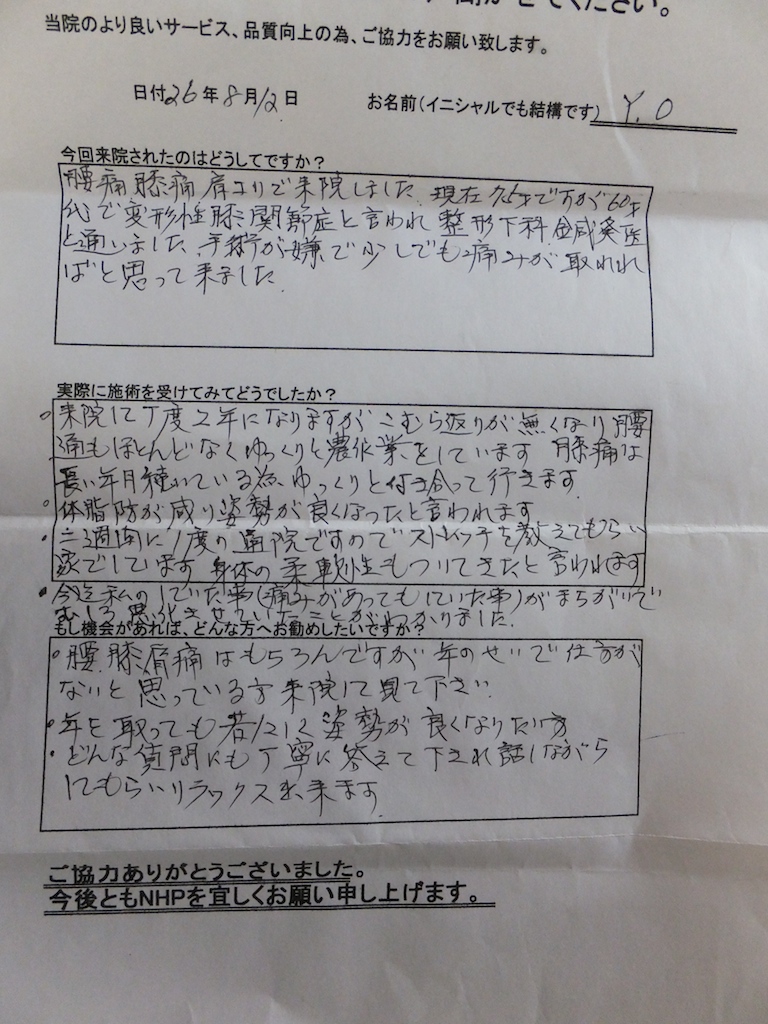 当院のより良いサービス、品質向上の為、ご協力をお願い致します。
日付26年8月12日 お名前(イニシャルでも結構です) Y.O
今回来院されたのはどうしてですか？
腰痛膝痛肩コリで来院しました。現在75才ですが60才
代で変形性膝関節症と言われ整形下科鍼灸医
と通いました。手術が嫌で少しでも痛みが取れれ
ばと思って来ました。
実際に施術を受けてみてどうでしたか？
来院して丁度2年になりますがこむら返りが無くなり腰
痛もほとんどなくゆっくりと農作業をしています 膝痛は
長い年月続いている為ゆっくりと付き合って行きます
・体脂肪が減り姿勢が良くなったと言われます
・二週間に1度の通院ですのでストレッチを教えてもらい
家でしています 身体の柔軟性もついてきたと言われます
・今迄私のしていた事(痛みがあってもしていた事)がまちがいで
むしろ悪化させていたことがわかりました。
もし機会があれば、どんな方へお勧めしたいですか？
・腰膝肩痛はもちろんですが年のせいで仕方が
ないと思っている方来院して見て下さい
・年を取っても若々しく姿勢が良くなりたい方
・どんな質問にも丁寧に答えて下され話しながら
してもらいリラックス出来ます
ご協力ありがとうございました。
今後ともNHPを宜しくお願い申し上げます。